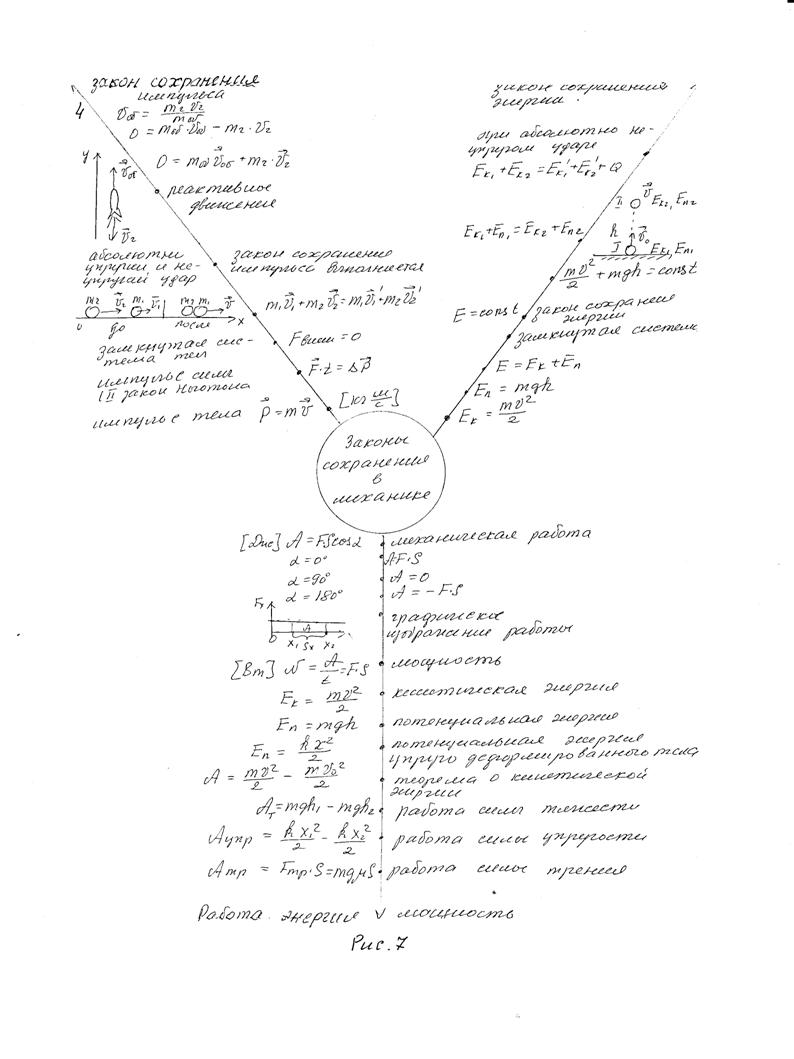 закон сохранения
импульса
4
υоб = m₂υ₂/mоб
0 = mоб·υоб − m₂·υ₂
0 = mоб υ⃗об + m₂·υ⃗₂
y
υ⃗об
υ⃗₂
реактивное
движения
абсолютни
упругий и не-
упругай удар
закон сохранение
импульса выполняется
m₂ υ⃗₂ m₁ υ⃗₁ m₂ m₁ υ⃗
0 до после x
m₁υ⃗₁ + m₂υ⃗₂ = m₁υ⃗₁' + m₂υ⃗₂'
замкнутая сис-
тема тел
Fвнеш = 0
импульс силы
II закон Ньютона
F⃗·t = Δp⃗
импульс тела p⃗ = mυ⃗ [кг м/с]
закон сохранения
энергии.
при абсолютно не-
упругом ударе
Eк₁ + Eк₂ = Eк₁' + Eк₂' + Q
II υ⃗ Eк₂, Eп₂
Eк₁ + Eп₁ = Eк₂ + Eп₂
h υ⃗₀
I Eк₁, Eп₁
mυ²/2 + mgh = const
E = const закон сохранения
энергии
замкнутая система
E = Eк + Eп
Eп = mgh
Eк = mυ²/2
Законы
сохранения
в
механике
[Дж] A = FScosα механическая работа
α = 0° A=F·S
α = 90° A = 0
α = 180° A = − F·S
Fx
A
0 x₁ Sx x₂
графическое
изображение работы
[Вт] N = A/t = F·S мощность
Eк = mυ²/2 кинетическая энергия
Eп = mgh потенциальная энергия
Eп = kx²/2 потенциальная энергия
упруго деформированного тела
A = mυ²/2 − mυ₀²/2 теорема о кинетической
энергии
Aт = mgh₁ − mgh₂ работа силы тяжести
Aупр = kx₁²/2 − kx₂²/2 работа силы упругости
Aтр = Fтр·S = mgμS работа силы трения
Работа энергия V мощность
Рис. 7